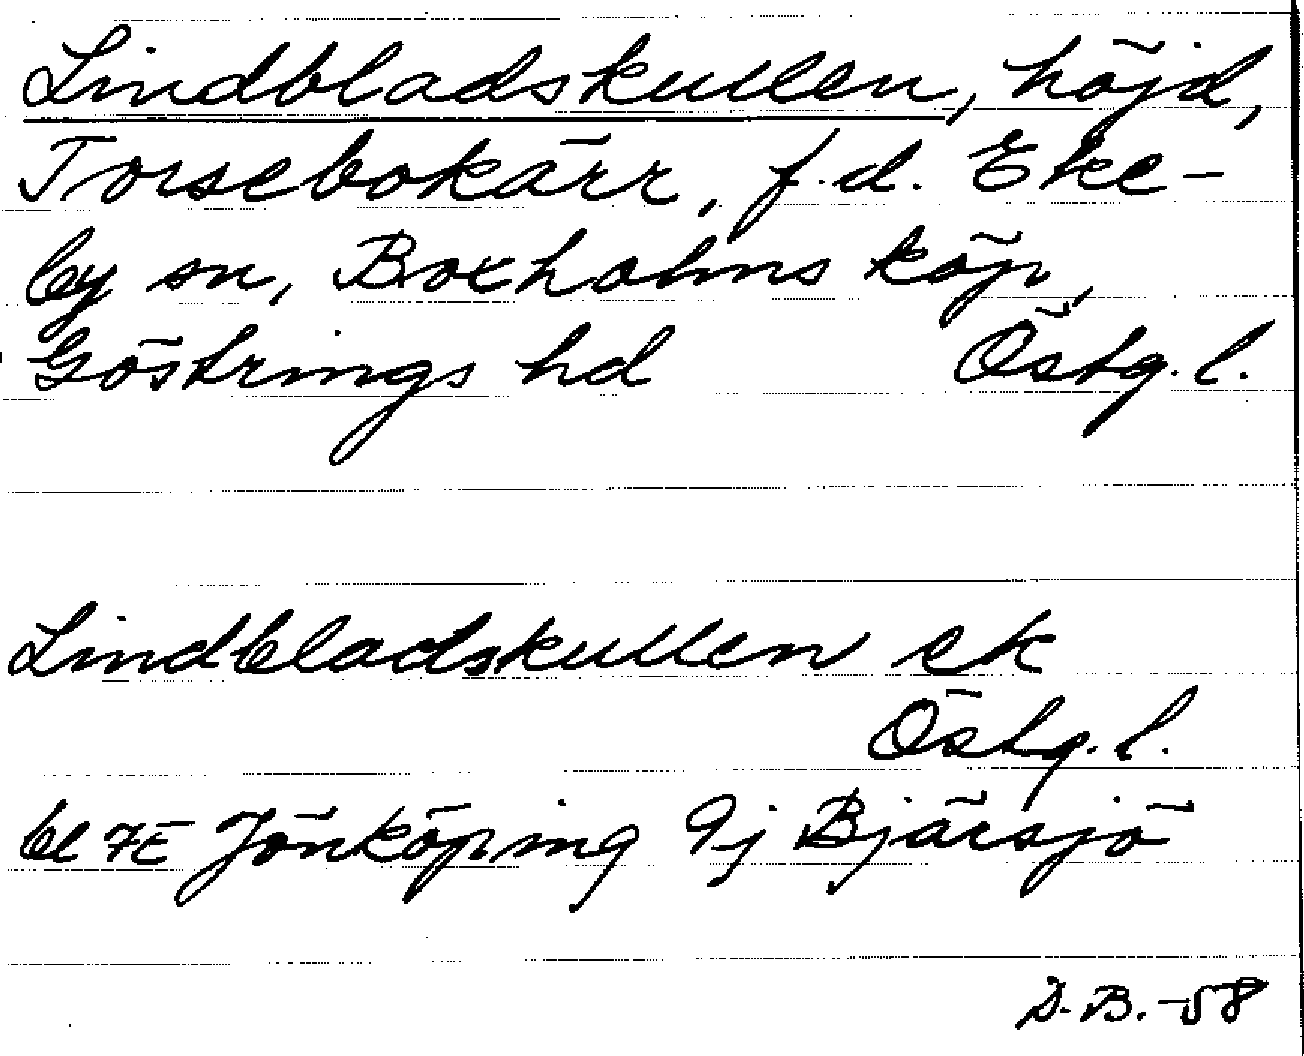 Lindbladskullen, höjd,
Torsebokärr, f.d. Eke-
by sn, Boxholms köp,
Göstrings hd Östg.l.
Lindbladskullen ek
Östg.l.
bl 7E Jönköping 9j Bjärsjö
D.B.-58